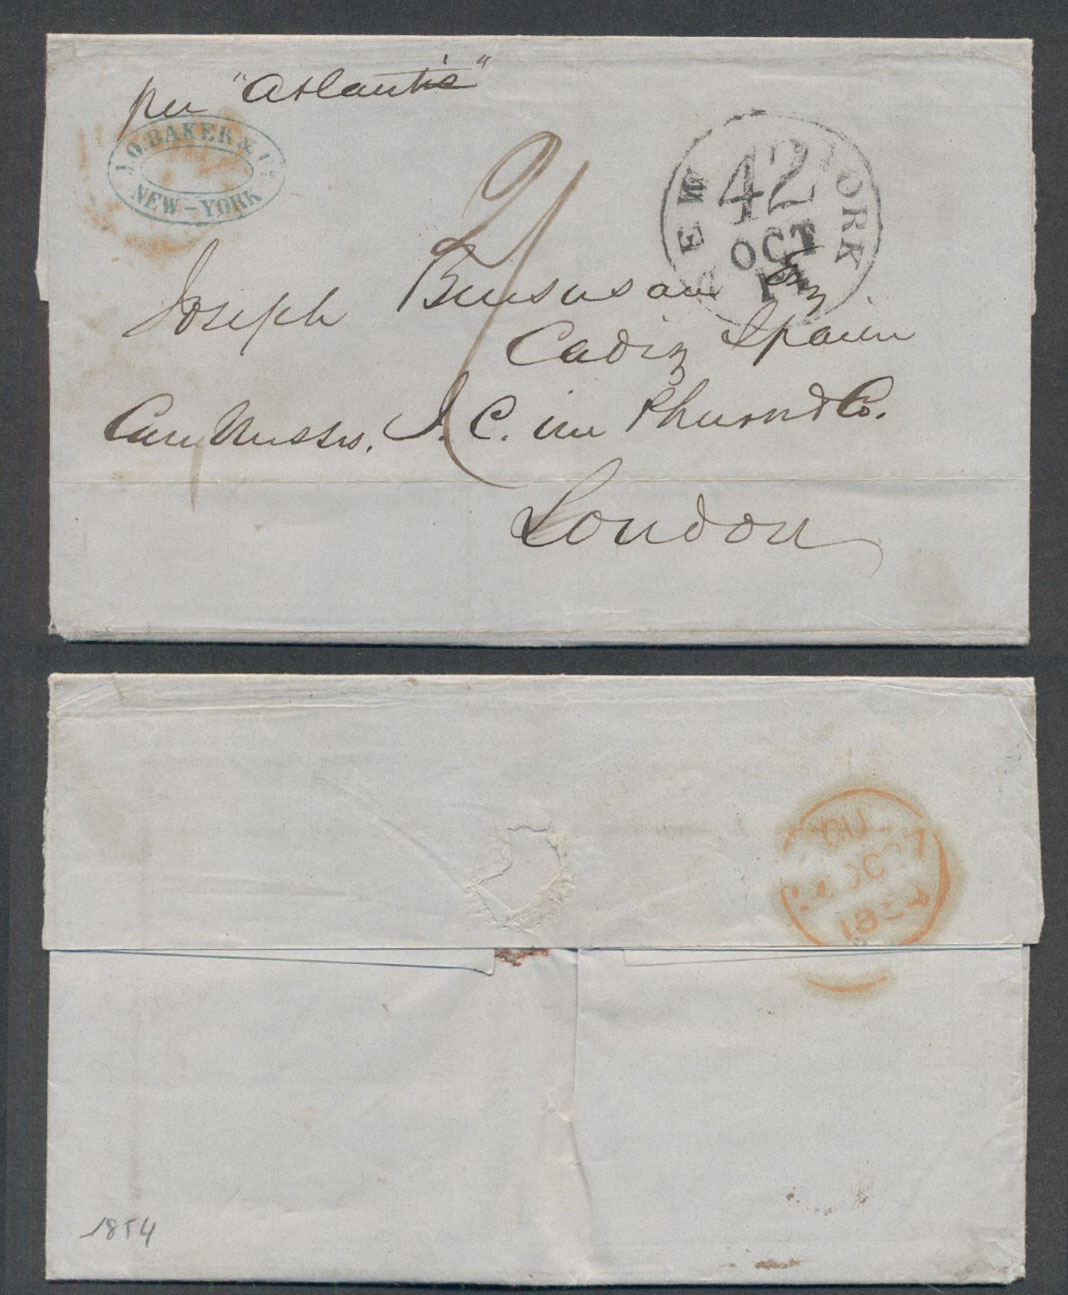 per "Atlantic"
J.O. BAKER & Co
NEW-YORK
2/
NEW YORK
42
OCT
Joseph Bensusan Esq
Cadiz Spain
Care Messrs. J. C. im Thurn & Co.
London
OC 27
1854
1854